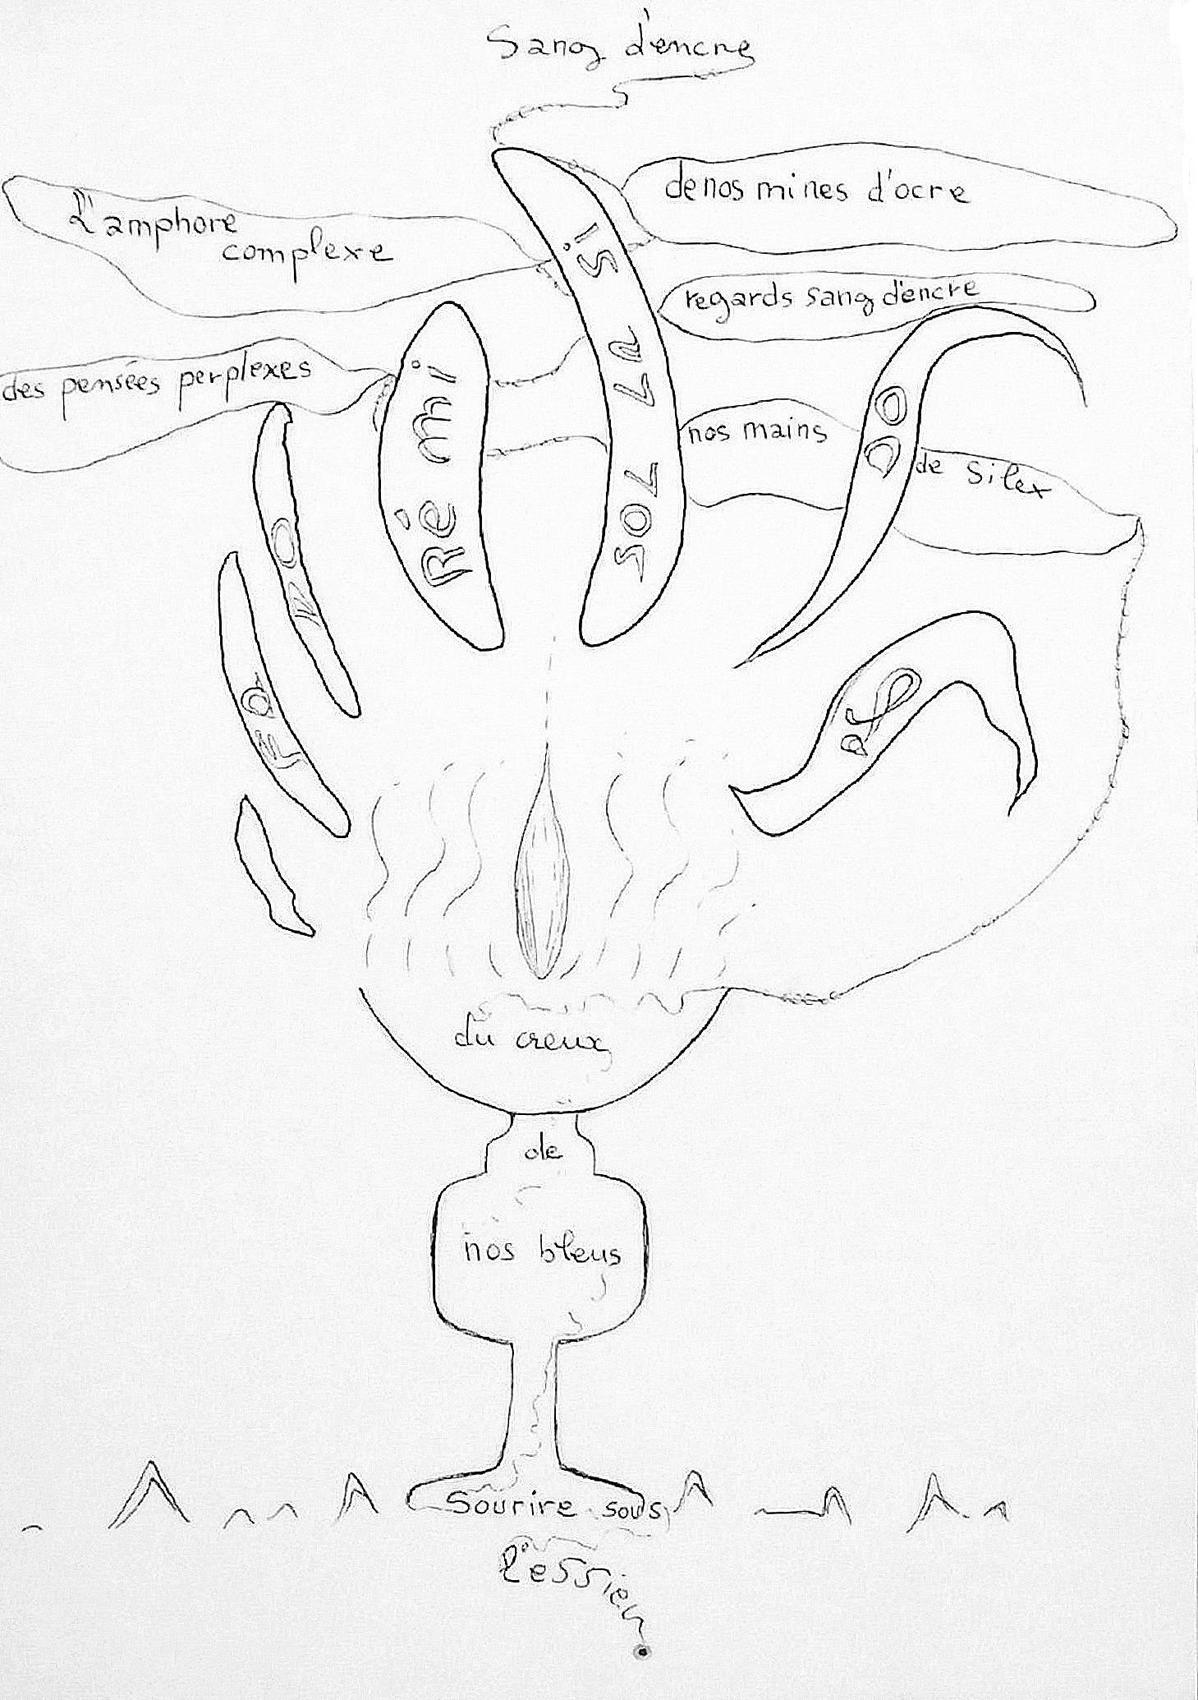 Sang d'encre
de nos mines d'ocre
L'amphore
complexe
regards sang d'encre
des pensées perplexes
nos mains
de silex
FA
DO
Ré mi
SOL LA si
DO
du creux
de
nos bleus
Sourire sous
l'essieu